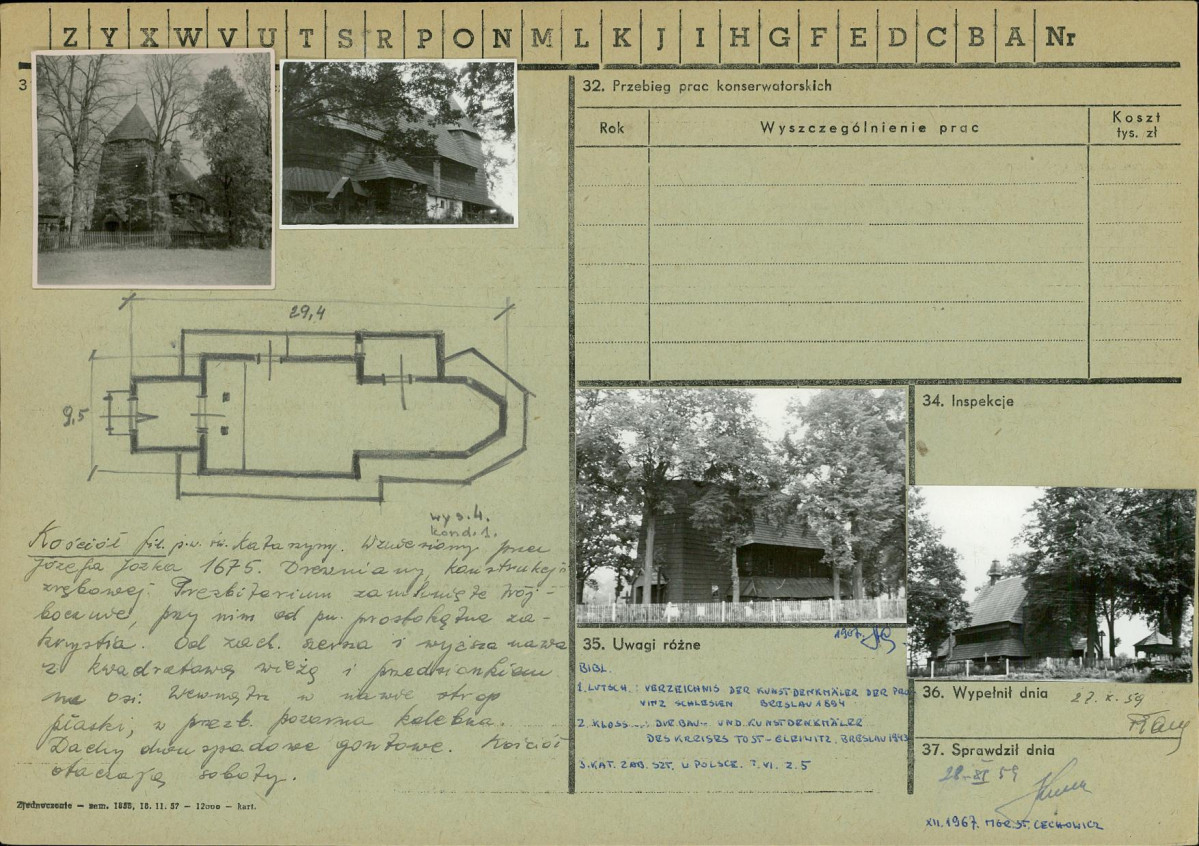 Z Y X W V U T S R P O N M L K J I H G F E D C B A Nr
3
29,4
9,5
wys. 4.
kond. 1.
Kościół fil. p.w. św. Katarzyny. Wzniesiony przez
Józefa Jozka 1675. Drewniany konstrukcji
zrębowej. Prezbiterium zamknięte trój-
bocznie, przy nim od pn. prostokątna za-
krystia. Od zach. szersza i wyższa nawa
z kwadratową wieżą i przedsionkiem
na osi. Wewnątrz w nawie strop
płaski, w prezb. pozorna kolebka.
Dachy dwuspadowe gontowe. Kościół
otaczają soboty.
Zjednoczenie — zam. 1858, 18. 11. 57 — 12000 — kart.
32. Przebieg prac konserwatorskich
Rok
Wyszczególnienie prac
Koszt
tys. zł
34. Inspekcje
1967.
35. Uwagi różne
BIBL.
1. LUTSCH.: VERZEICHNIS DER KUNSTDENKMÄLER DER PRO
VINZ SCHLESIEN BRESLAU 1894
2. KLOSS...: DIE BAU- UND KUNSTDENKMÄLER
DES KREISES TOST-GLEIWITZ, BRESLAU 1943
3. KAT. ZAB. SZT. W POLSCE. T. VI. Z. 5
36. Wypełnił dnia
27. X. 59
37. Sprawdził dnia
28-XI 59
XII. 1967. MGR ST. CECHOWICZ